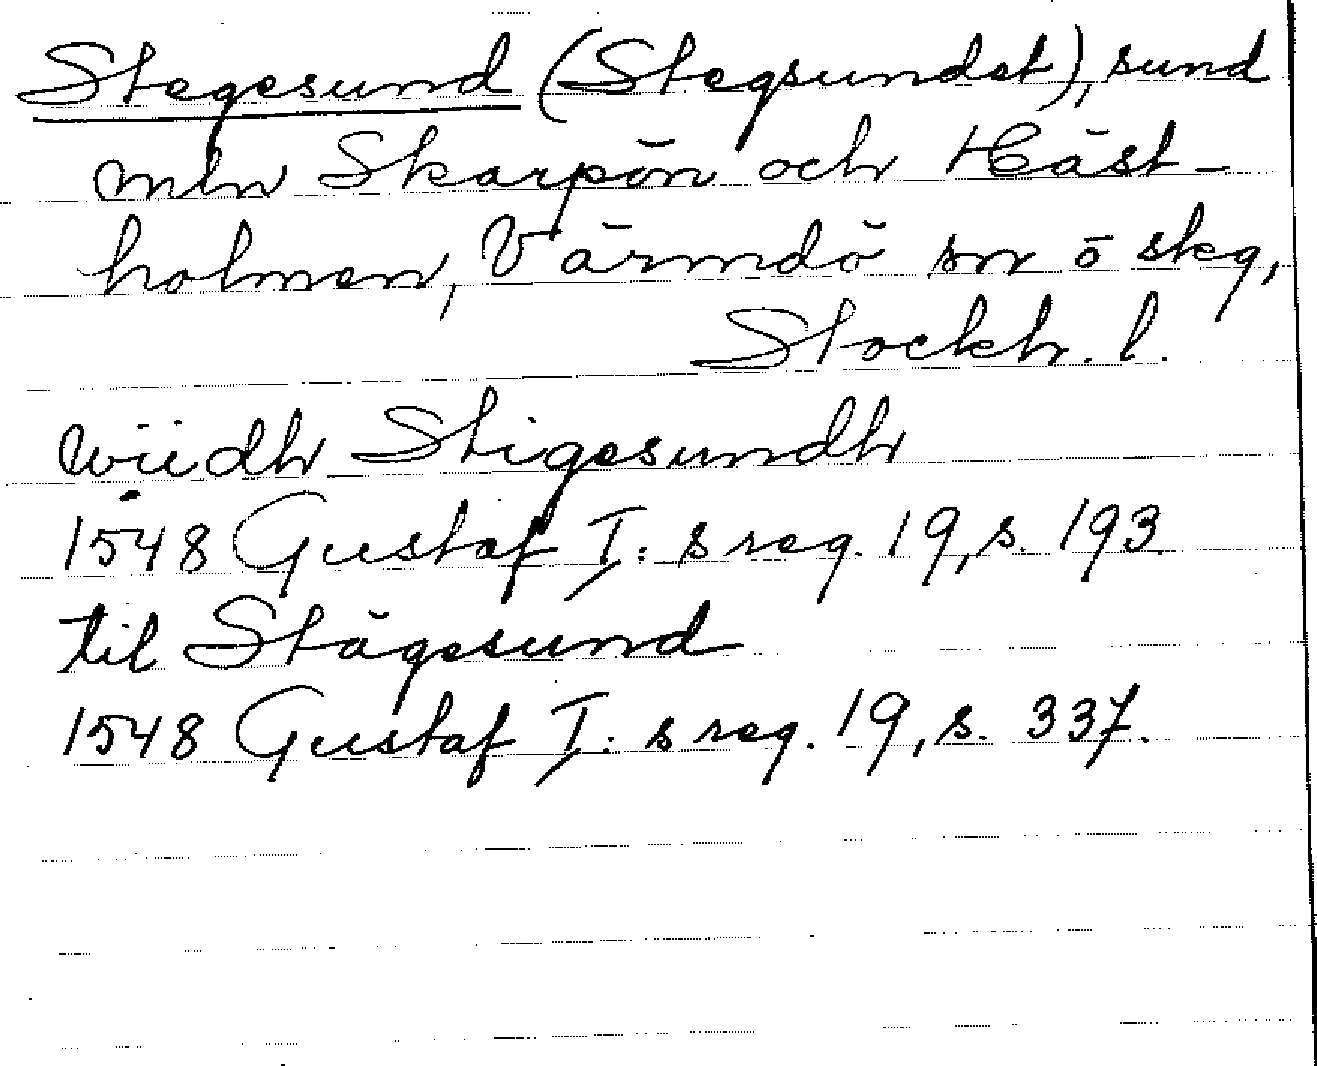 Stegesund (Stegsundet), sund
mln Skarpön och Häst-
holmen, Värmdö sn ö skg,
Stockh. l.
wiidh Stigesundh
1548 Gustaf I: s reg. 19, s. 193
til Stägesund
1548 Gustaf I: s reg. 19, s. 337.